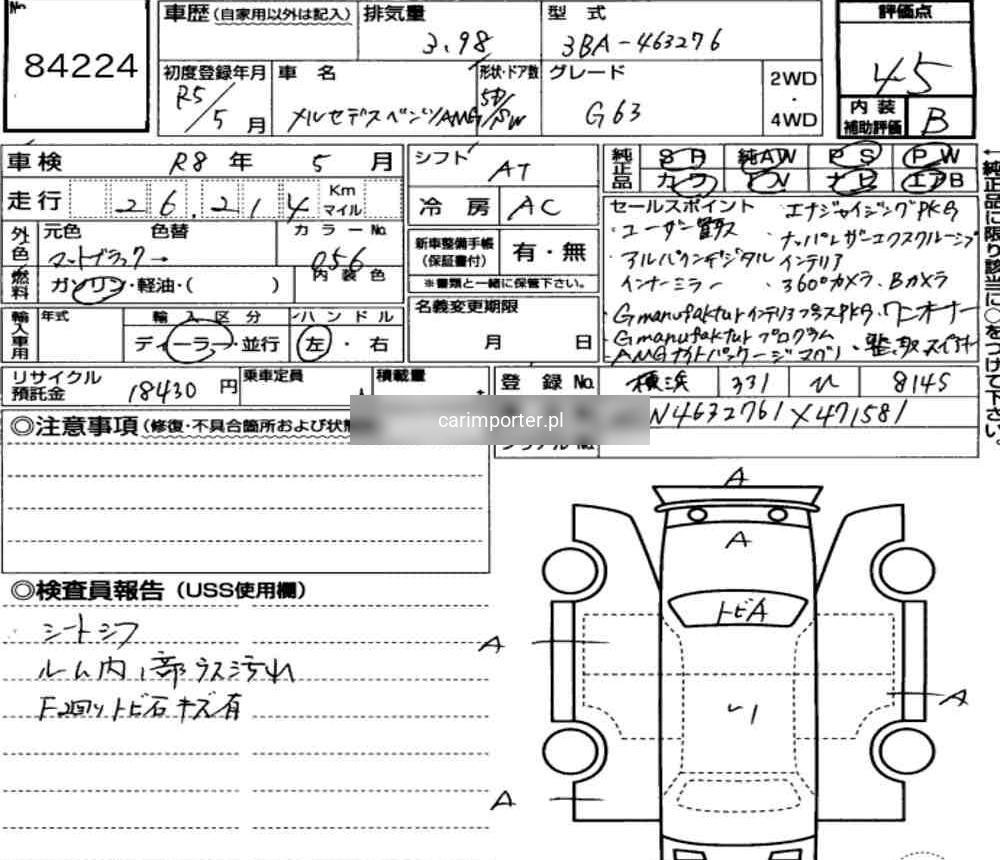 No.
84224
車歴(自家用以外は記入) 排気量 3.98 型式 3BA-463276 評価点 45
初度登録年月 R5/5月 車名 メルセデスベンツ/AMG 形状・ドア数 5D/SW グレード G63 2WD・4WD 内装補助評価 B
車検 R8年 5月
走行 26,214 Km マイル
外色 元色 色替 カラーNo. 056
マットブラック→ 内装色
燃料 ガソリン・軽油・( )
輸入車用 年式 輸入区分 ディーラー・並行 ハンドル 左・右
シフト AT
冷房 AC
新車整備手帳(保証書付) 有・無
※書類と一緒に保管下さい。
名義変更期限 月 日
純正品 SR 純AW PS PW
カワ TV ナビ エアB
←純正品に限り該当に○をつけて下さい。
セールスポイント ・エナジャイジングPKG
・ユーザー買取 ・ナッパレザーエクスクルーシブ
・アルパインデジタル インテリア
インナーミラー ・360°カメラ、Bカメラ
・Gmanufakturインテリアプラスpkg・ワンオーナー
・Gmanufakturプログラム
・AMGナイトパッケージ
リサイクル預託金 18430円 乗車定員 人 積載量
登録No. 横浜 331 ひ 8145
N4632761X471581
carimporter.pl
◎注意事項(修復・不具合箇所および状態
◎検査員報告(USS使用欄)
シートシワ
ルーム内1部ウス汚れ
F廻りトビ石キズ有
A
A
トビA
A
A
A